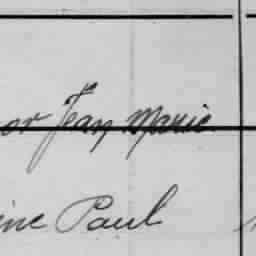 or Jean Marie
ine Paul